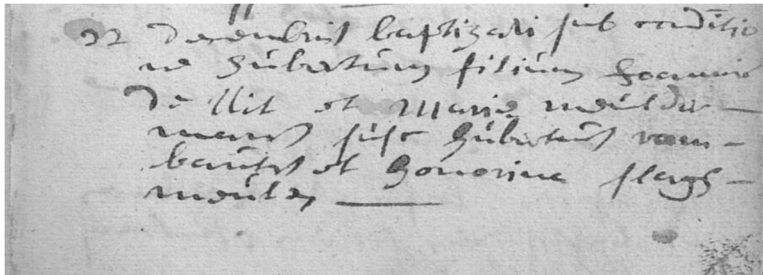 22 decembris baptizavi sub conditio
ne Hubertum filium Joannis
de Uit et Marie meulde
mans susc Hubertus vam
bauts et Honorina slags
meulen